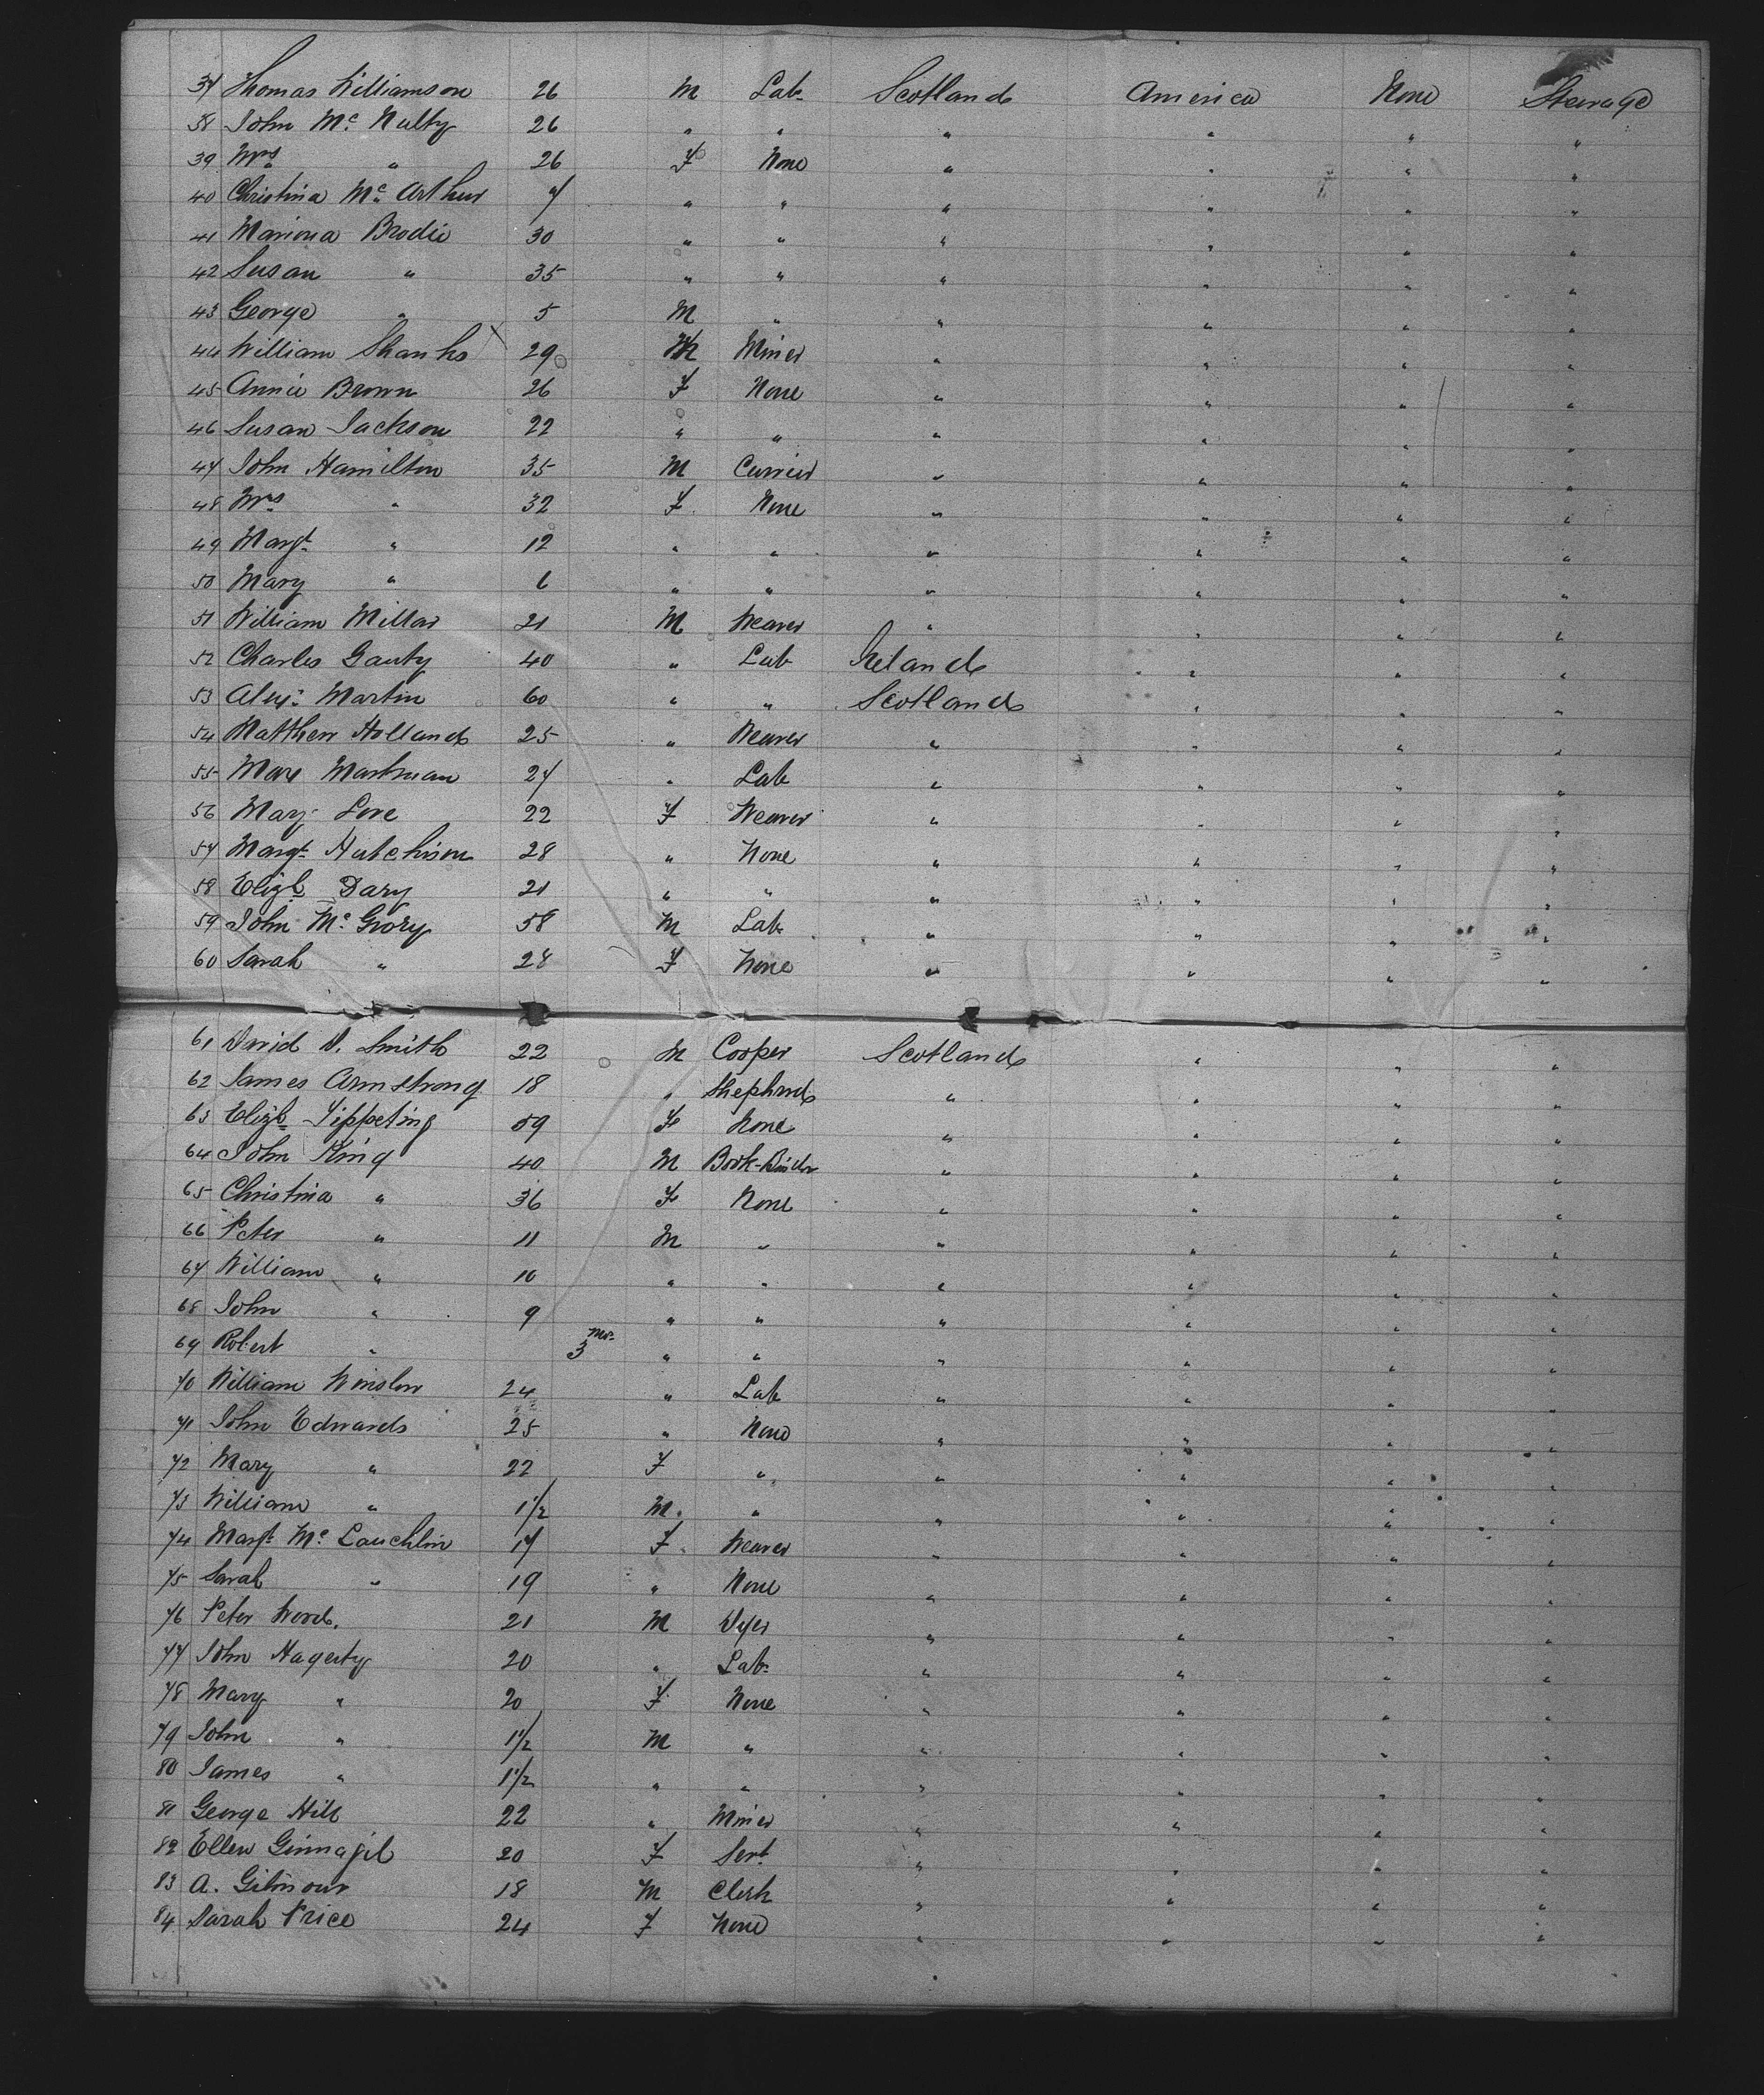 37 Thomas Williamson 26 M Lab. Scotland America None Steerage
38 John Mc Nulty 26 " " " " " "
39 Mrs " 26 F None " " " "
40 Christina Mc Arthur 7 " " " " " "
41 Mariona Brodie 30 " " " " " "
42 Susan " 35 " " " " " "
43 George " 5 M " " " " "
44 William Shanks 29 M Miner " " " "
45 Annie Brown 26 F None " " " "
46 Susan Jackson 22 " " " " " "
47 John Hamilton 35 M Currier " " " "
48 Mrs " 32 F None " " " "
49 Margt " 12 " " " " " "
50 Mary " 6 " " " " " "
51 William Millar 21 M Weaver " " " "
52 Charles Gauty 40 " Lab Ireland " " "
53 Alexr Martin 60 " " Scotland " " "
54 Matthew Holland 25 " Weaver " " " "
55 Max Martman 27 " Lab " " " "
56 Mary Love 22 F Weaver " " " "
57 Margt Hutchison 28 " None " " " "
58 Elizb Dary 21 " " " " " "
59 John Mc Grory 58 M Lab. " " " "
60 Sarah " 28 F None " " " "
61 David D. Smith 22 M Cooper Scotland " " "
62 James Armstrong 18 " Shepherd " " " "
63 Elizb Tippeting 59 F None " " " "
64 John King 40 M Book-Binder " " " "
65 Christina " 36 F None " " " "
66 Peter " 11 M " " " " "
67 William " 10 " " " " " "
68 John " 9 " " " " " "
69 Robert " 3 mos " " " " " "
70 William Winslow 24 " Lab " " " "
71 John Edwards 25 " None " " " "
72 Mary " 22 F " " " " "
73 William " 1½ M. " " " " "
74 Margt Mc Lauchlin 17 F Weaver " " " "
75 Sarah " 19 " None " " " "
76 Peter Wood. 21 M Dyer " " " "
77 John Hagerty 20 " Lab. " " " "
78 Mary " 20 F None " " " "
79 John " 1½ M " " " " "
80 James " 1½ " " " " " "
81 George Hill 22 " Miner " " " "
82 Ellen 20 F Servt " " " "
83 A. Gilmour 18 M Clerk " " " "
84 Sarah Price 24 F None " " " "